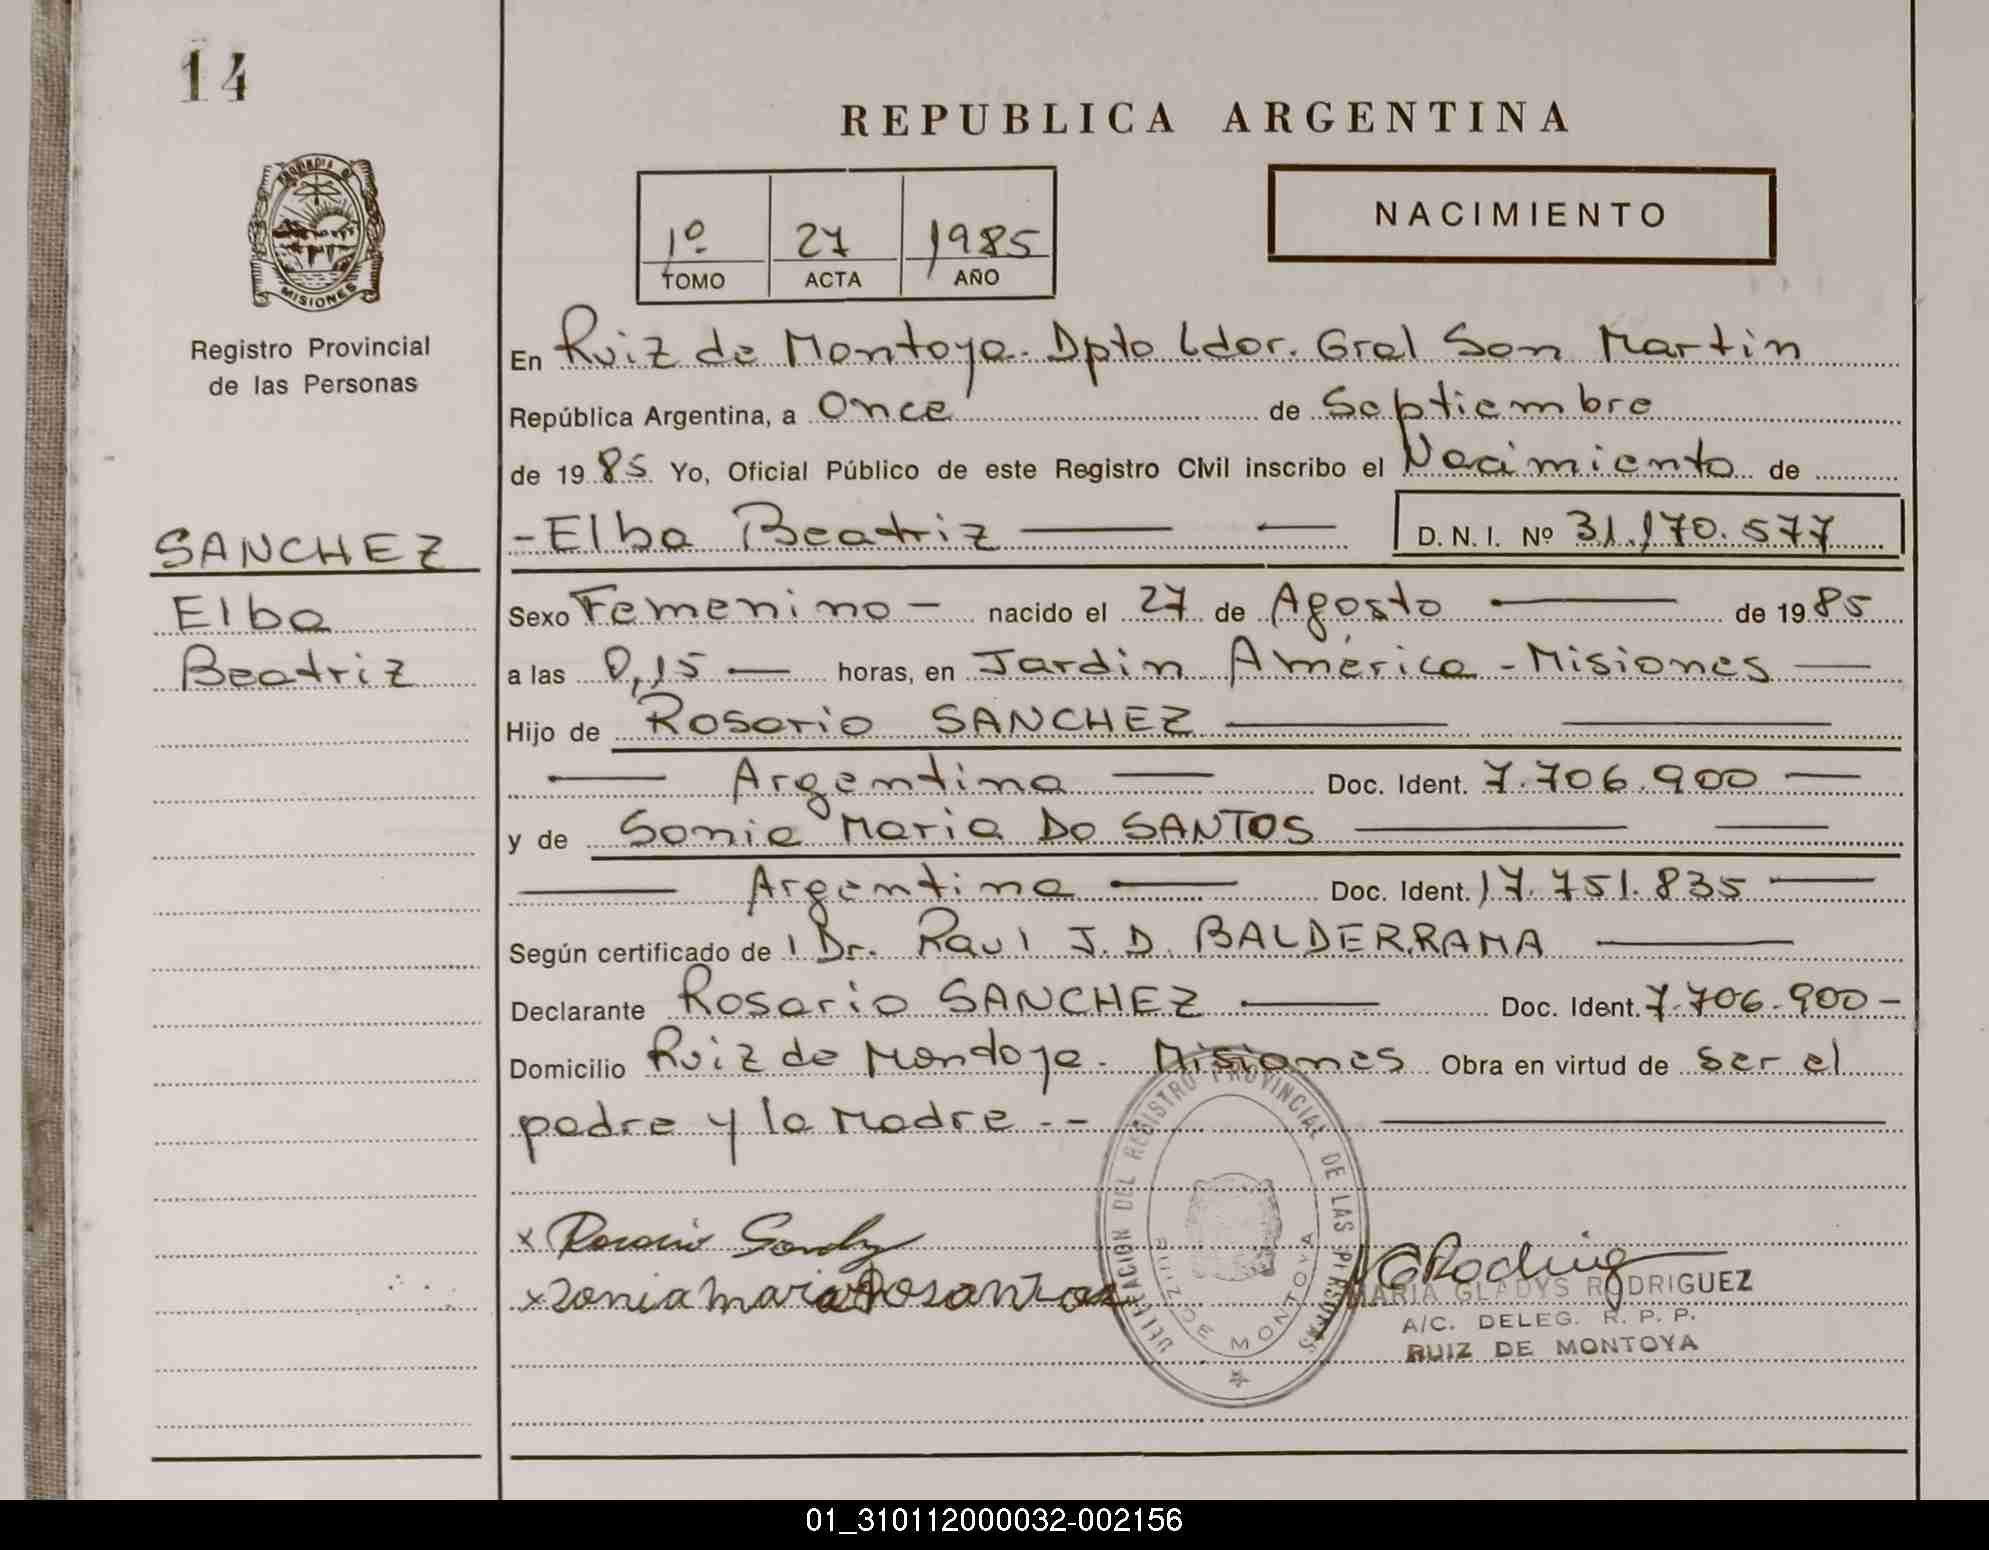 14
REPUBLICA ARGENTINA
PROVINCIA DE
MISIONES
Registro Provincial
de las Personas
NACIMIENTO
1º 27 1985
TOMO ACTA AÑO
En Ruiz de Montoya. Dpto Ldor. Gral San Martin
República Argentina, a Once de Septiembre
de 1985 Yo, Oficial Público de este Registro Civil inscribo el Nacimiento de
SANCHEZ
Elba
Beatriz
- Elba Beatriz — — D. N. I. Nº 31.170.577
Sexo Femenino — nacido el 27 de Agosto — de 1985
a las 0,15 — horas, en Jardin América - Misiones —
Hijo de Rosario SANCHEZ — —
— Argentina — Doc. Ident. 7.706.900 —
y de Sonia Maria Do SANTOS — —
— Argentina — Doc. Ident. 17.751.835 —
Según certificado de Dr. Raul J. D. BALDERRAMA —
Declarante Rosario SANCHEZ — Doc. Ident. 7.706.900 —
Domicilio Ruiz de Montoya - Misiones Obra en virtud de ser el
padre y la Madre - - —
x Rosario Sanchez
x Sonia Maria Do santos
DELEGACION DEL REGISTRO PROVINCIAL DE LAS PERSONAS
RUIZ DE MONTOYA
MARIA GLADYS RODRIGUEZ
A/C. DELEG. R. P. P.
RUIZ DE MONTOYA
01_310112000032-002156